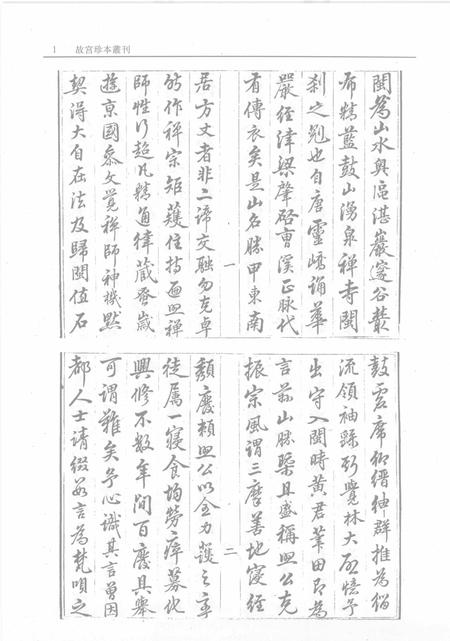 1 故宮珍本叢刊
閩為山水奧區湛巖邃谷叢
布精藍鼓山湧泉禪寺閩
剎之冠也自唐靈嶠誦華
嚴經梁肇啓曹溪正脉代
有傳衣矣是山名勝甲東南
一
居方丈者非二諦交融勿克卓
然作禪宗矩矱住持遍照禪
師性行超凡精通律藏蚤歲
遊京國參文覺禪師神機默
契得大自在法及歸閩值石
鼓虛席仰縉紳群推為緇
流領袖繇斯覺林大啟憶予
出守入閩時黃君莘田即為
言茲山勝槩且盛稱照公克
振宗風謂三摩善地寖經
二
頹廢賴照公以全力護之率
徒屬一寢食均勞瘁募化
興修不數年間百廢具舉
可謂難矣予心識其言曾因
都人士請綴數言為梵唄之